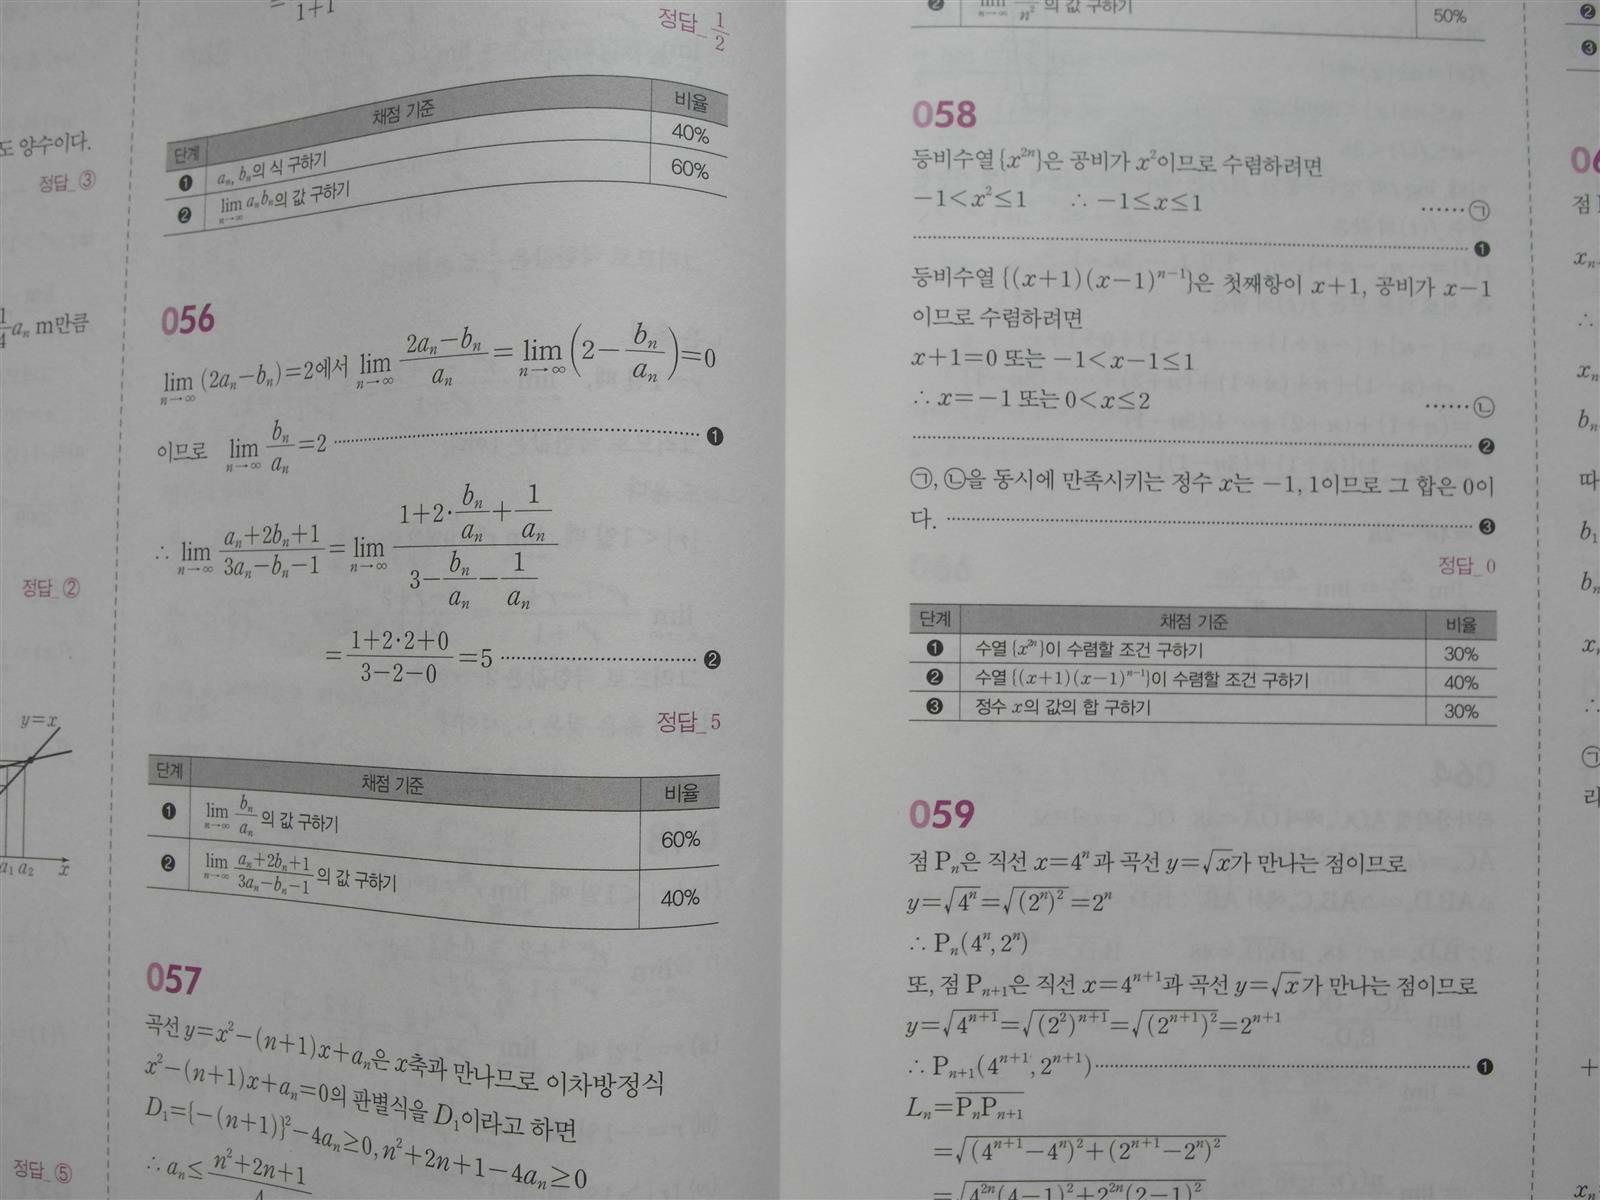 도 양수이다.
정답_③
1/4 aₙ m만큼
정답_②
y=x
a₁ a₂ x
정답_⑤
1+1
정답_1/2
단계 채점 기준 비율
❶ aₙ, bₙ의 식 구하기 40%
❷ lim(n→∞) aₙbₙ의 값 구하기 60%
056
lim(n→∞) (2aₙ−bₙ)=2에서 lim(n→∞) (2aₙ−bₙ)/aₙ = lim(n→∞) (2−bₙ/aₙ)=0
이므로 lim(n→∞) bₙ/aₙ=2 ❶
∴ lim(n→∞) (aₙ+2bₙ+1)/(3aₙ−bₙ−1) = lim(n→∞) (1+2·bₙ/aₙ+1/aₙ)/(3−bₙ/aₙ−1/aₙ)
=(1+2·2+0)/(3−2−0)=5 ❷
정답_5
단계 채점 기준 비율
❶ lim(n→∞) bₙ/aₙ의 값 구하기 60%
❷ lim(n→∞) (aₙ+2bₙ+1)/(3aₙ−bₙ−1)의 값 구하기 40%
057
곡선 y=x²−(n+1)x+aₙ은 x축과 만나므로 이차방정식
x²−(n+1)x+aₙ=0의 판별식을 D₁이라고 하면
D₁={−(n+1)}²−4aₙ≥0, n²+2n+1−4aₙ≥0
∴ aₙ≤(n²+2n+1)/4
❷ lim(n→∞) /n²의 값 구하기 50%
058
등비수열 {x²ⁿ}은 공비가 x²이므로 수렴하려면
−1<x²≤1 ∴ −1≤x≤1 ……㉠
❶
등비수열 {(x+1)(x−1)ⁿ⁻¹}은 첫째항이 x+1, 공비가 x−1
이므로 수렴하려면
x+1=0 또는 −1<x−1≤1
∴ x=−1 또는 0<x≤2 ……㉡
❷
㉠, ㉡을 동시에 만족시키는 정수 x는 −1, 1이므로 그 합은 0이
다. ❸
정답_0
단계 채점 기준 비율
❶ 수열 {x²ⁿ}이 수렴할 조건 구하기 30%
❷ 수열 {(x+1)(x−1)ⁿ⁻¹}이 수렴할 조건 구하기 40%
❸ 정수 x의 값의 합 구하기 30%
059
점 Pₙ은 직선 x=4ⁿ과 곡선 y=√x가 만나는 점이므로
y=√(4ⁿ)=√((2ⁿ)²)=2ⁿ
∴ Pₙ(4ⁿ, 2ⁿ)
또, 점 Pₙ₊₁은 직선 x=4ⁿ⁺¹과 곡선 y=√x가 만나는 점이므로
y=√(4ⁿ⁺¹)=√((2²)ⁿ⁺¹)=√((2ⁿ⁺¹)²)=2ⁿ⁺¹
∴ Pₙ₊₁(4ⁿ⁺¹, 2ⁿ⁺¹) ❶
Lₙ=PₙPₙ₊₁
=√((4ⁿ⁺¹−4ⁿ)²+(2ⁿ⁺¹−2ⁿ)²)
=√(4²ⁿ(4−1)²+2²ⁿ(2−1)²)
❷
❸
점
∴
따
b₁
∴
㉠
라
+